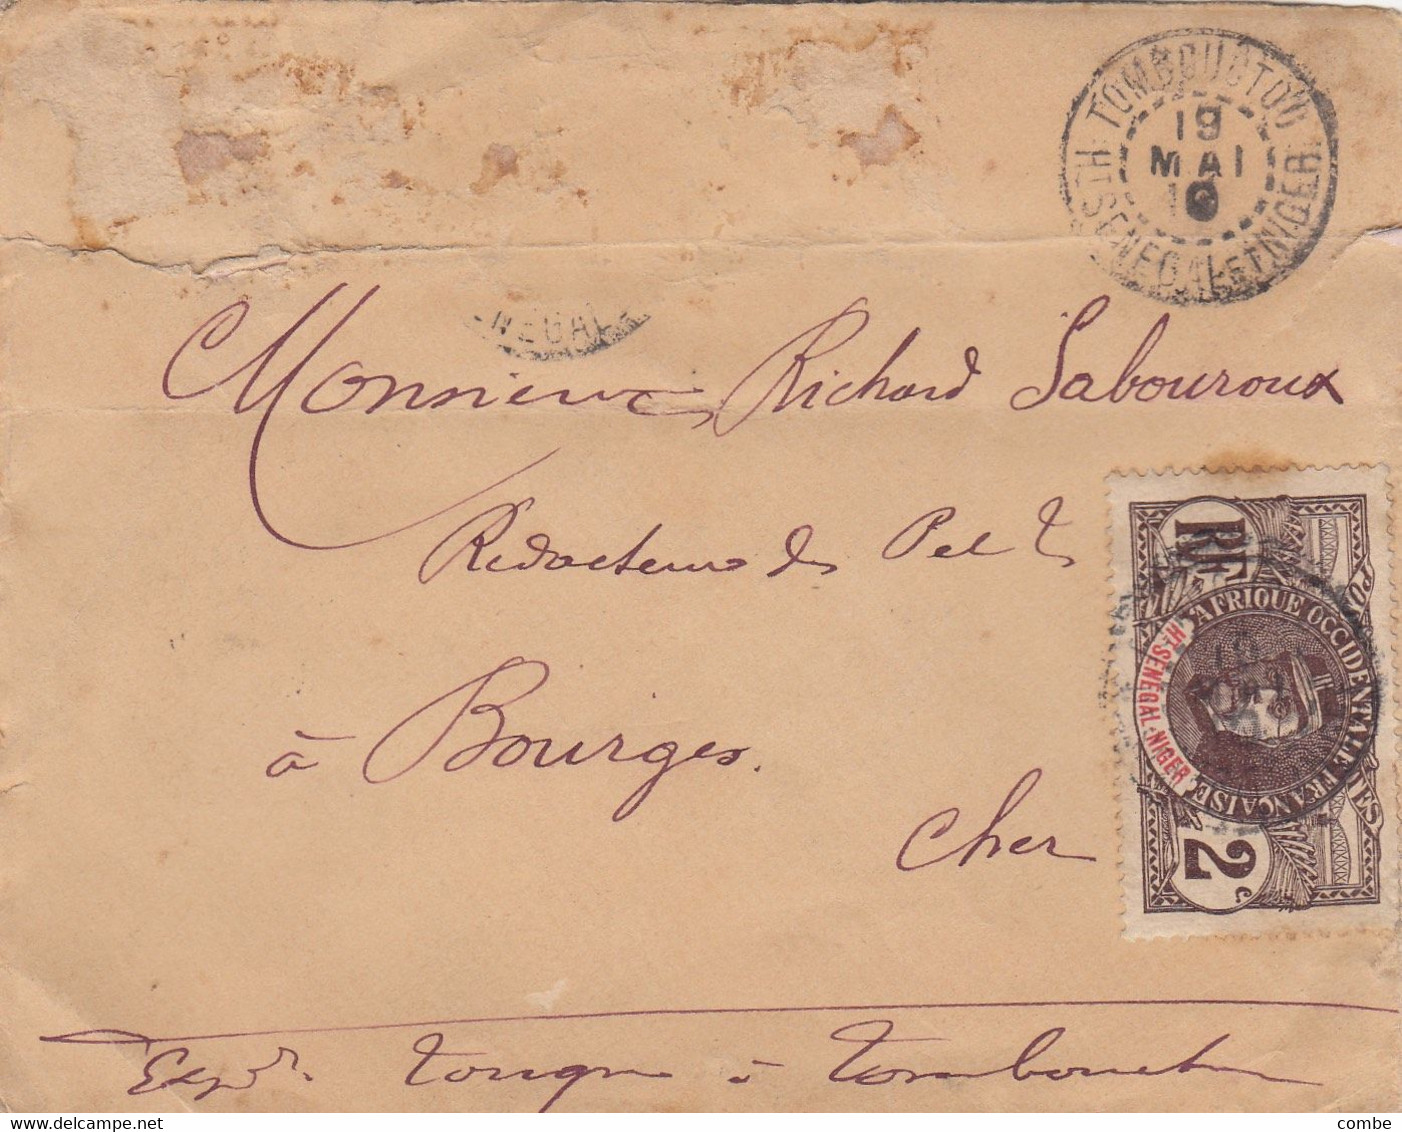 TOMBOUCTOU
19
MAI
10
Ht SENEGAL ET NIGER
NEGAL
Monsieur Richard Sabouroux
Rédacteur
à Bourges.
Cher
RF
POSTES
AFRIQUE OCCIDENTALE FRANÇAISE
Ht SÉNÉGAL-NIGER
2 c.
Expr. à Tombouctou
www.delcampe.net
combe